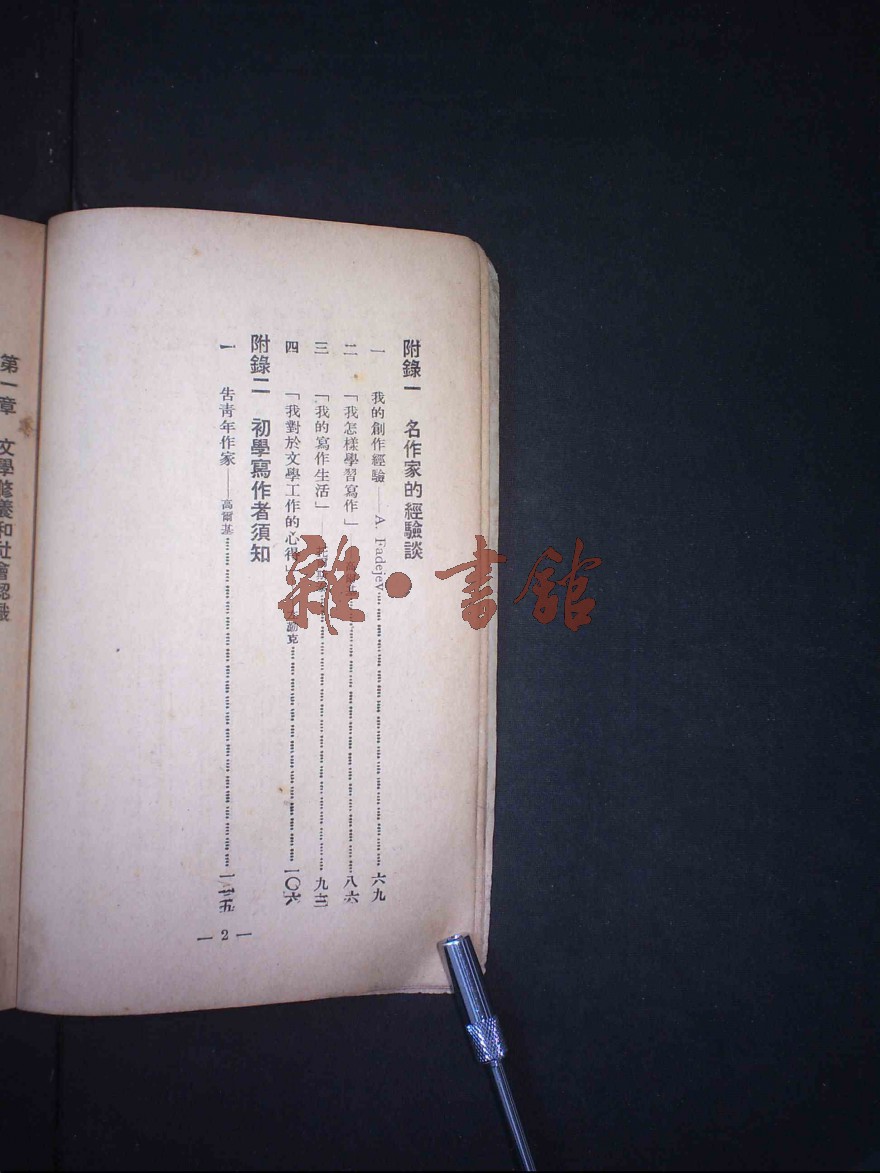 附錄一 名作家的經驗談
一 我的創作經驗——A. Fadejev……六九
二 「我怎樣學習寫作」……八六
三 「我的寫作生活」……九三
四 「我對於文學工作的心得」……一〇六
附錄二 初學寫作者須知
一 告青年作家——高爾基……
— 2 —
第一章 文學修養和社會認識
雜·書館